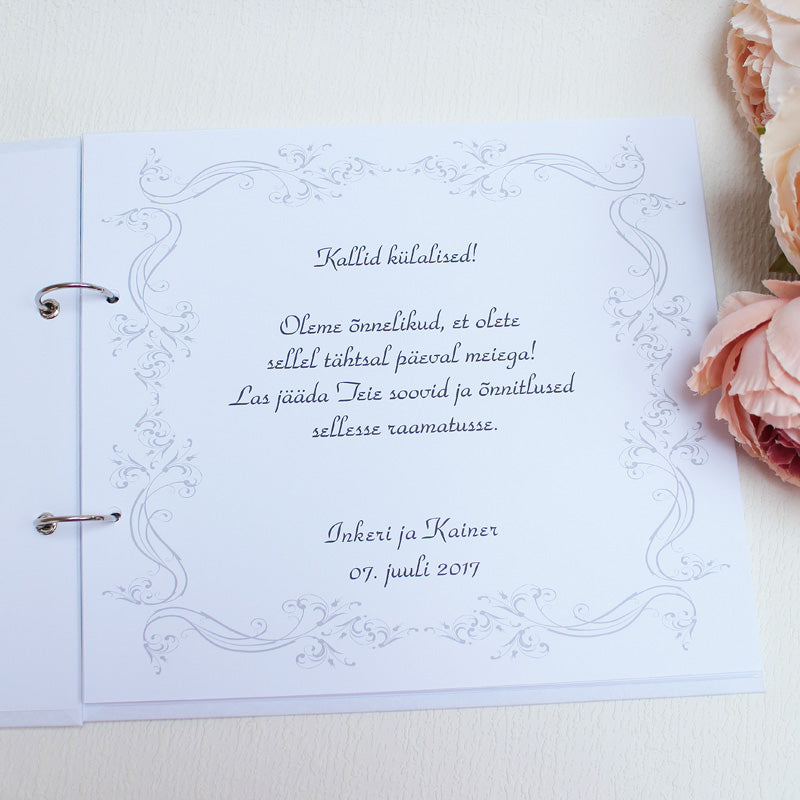 Kallid külalised!
Oleme õnnelikud, et olete
sellel tähtsal päeval meiega!
Las jääda Teie soovid ja õnnitlused
sellesse raamatusse.
Inkeri ja Kainer
07. juuli 2017